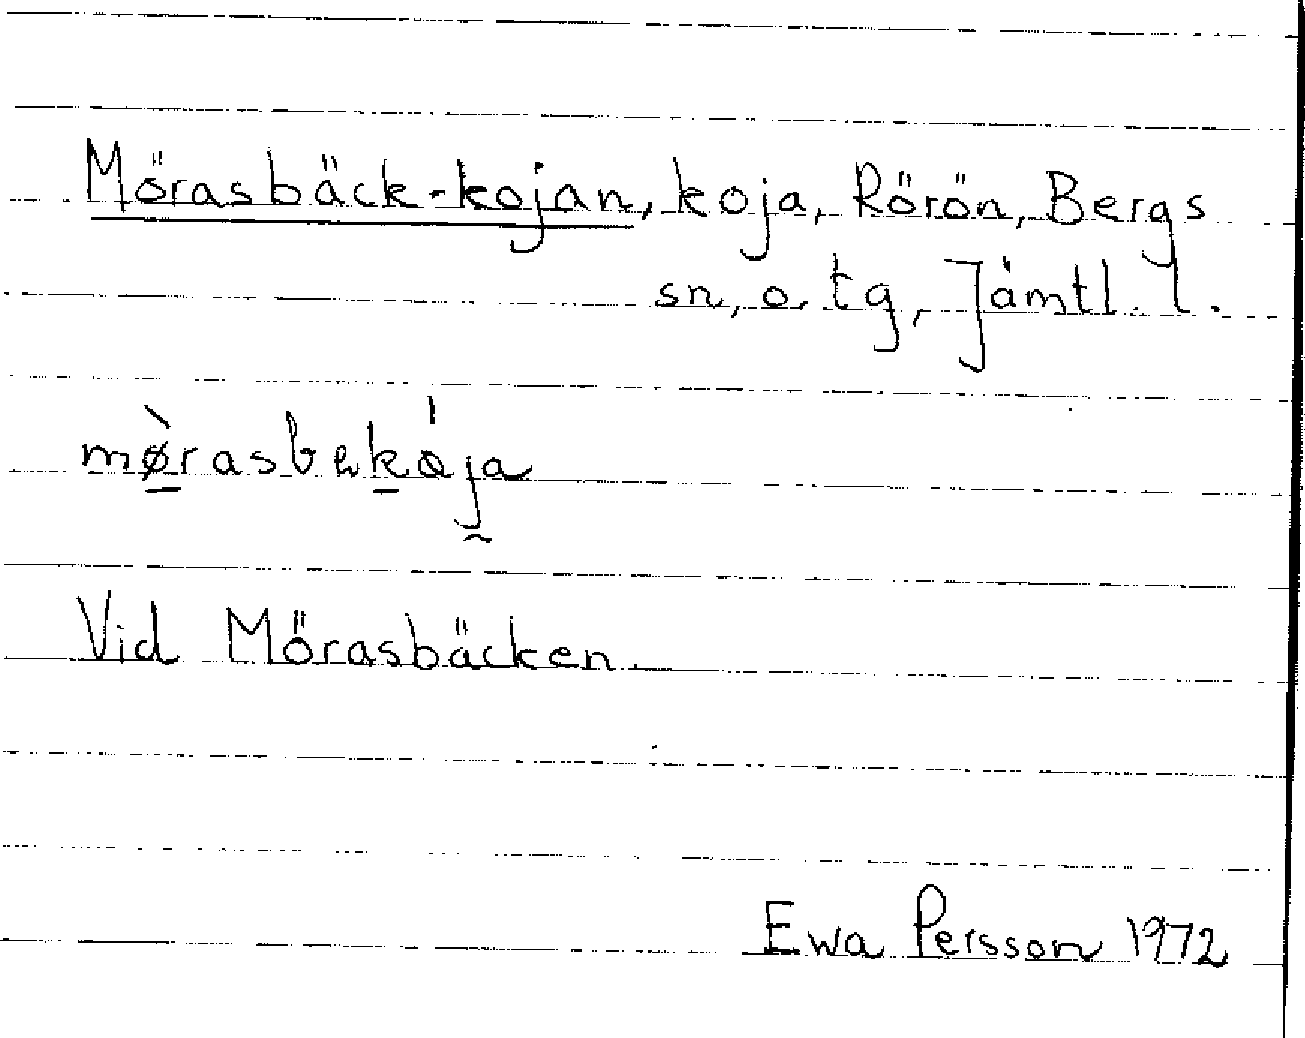 Mörasbäck-kojan, koja, Rörön, Bergs
sn, o. tg, Jämtl. l.
Vid Mörasbäcken.
Ewa Persson 1972